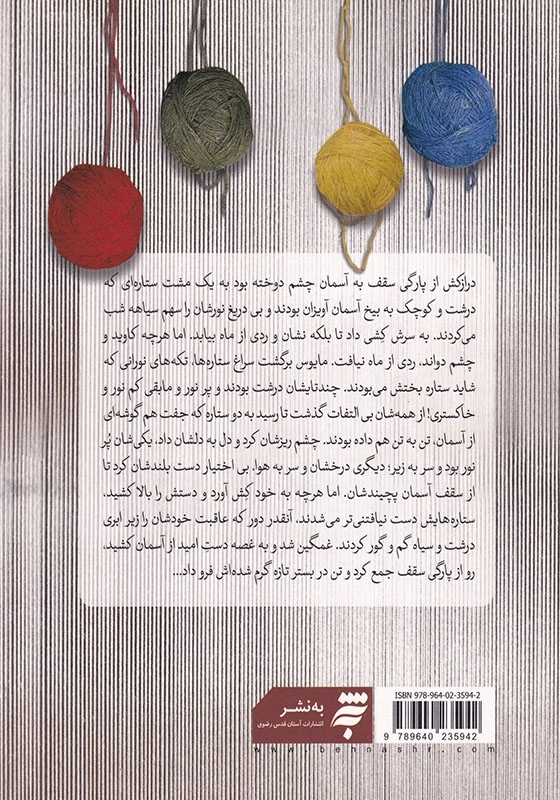 درازکش از پارگی سقف به آسمان چشم دوخته بود به یک مشت ستاره‌ای که
درشت و کوچک به بیخ آسمان آویزان بودند و بی دریغ نورشان را سهم سیاهه شب
می‌کردند. به سرش کِشی داد تا بلکه نشان و ردی از ماه بیابد. اما هرچه کاوید و
چشم دواند، ردی از ماه نیافت. مایوس برگشت سراغ ستاره‌ها، تکه‌های نورانی که
شاید ستاره بختش می‌بودند. چندتایشان درشت بودند و پر نور و مابقی کم نور و
خاکستری! از همه‌شان بی التفات گذشت تا رسید به دو ستاره که جفت هم گوشه‌ای
از آسمان، تن به تن هم داده بودند. چشم ریزشان کرد و دل به دلشان داد، یکی‌شان پُر
نور بود و سر به زیر؛ دیگری درخشان و سر به هوا، بی اختیار دست بلندشان کرد تا
از سقف آسمان پچیندشان. اما هرچه به خود کِش آورد و دستش را بالا کشید،
ستاره‌هایش دست نیافتنی‌تر می‌شدند. آنقدر دور که عاقبت خودشان را زیر ابری
درشت و سیاه گم و گور کردند. غمگین شد و به غصه دستِ امید از آسمان کشید،
رو از پارگی سقف جمع کرد و تن در بستر تازه گرم شده‌اش فرو داد...
به‌نشر
انتشارات آستان قدس رضوی
ISBN 978-964-02-3594-2
9 789640 235942
www.behnashr.com